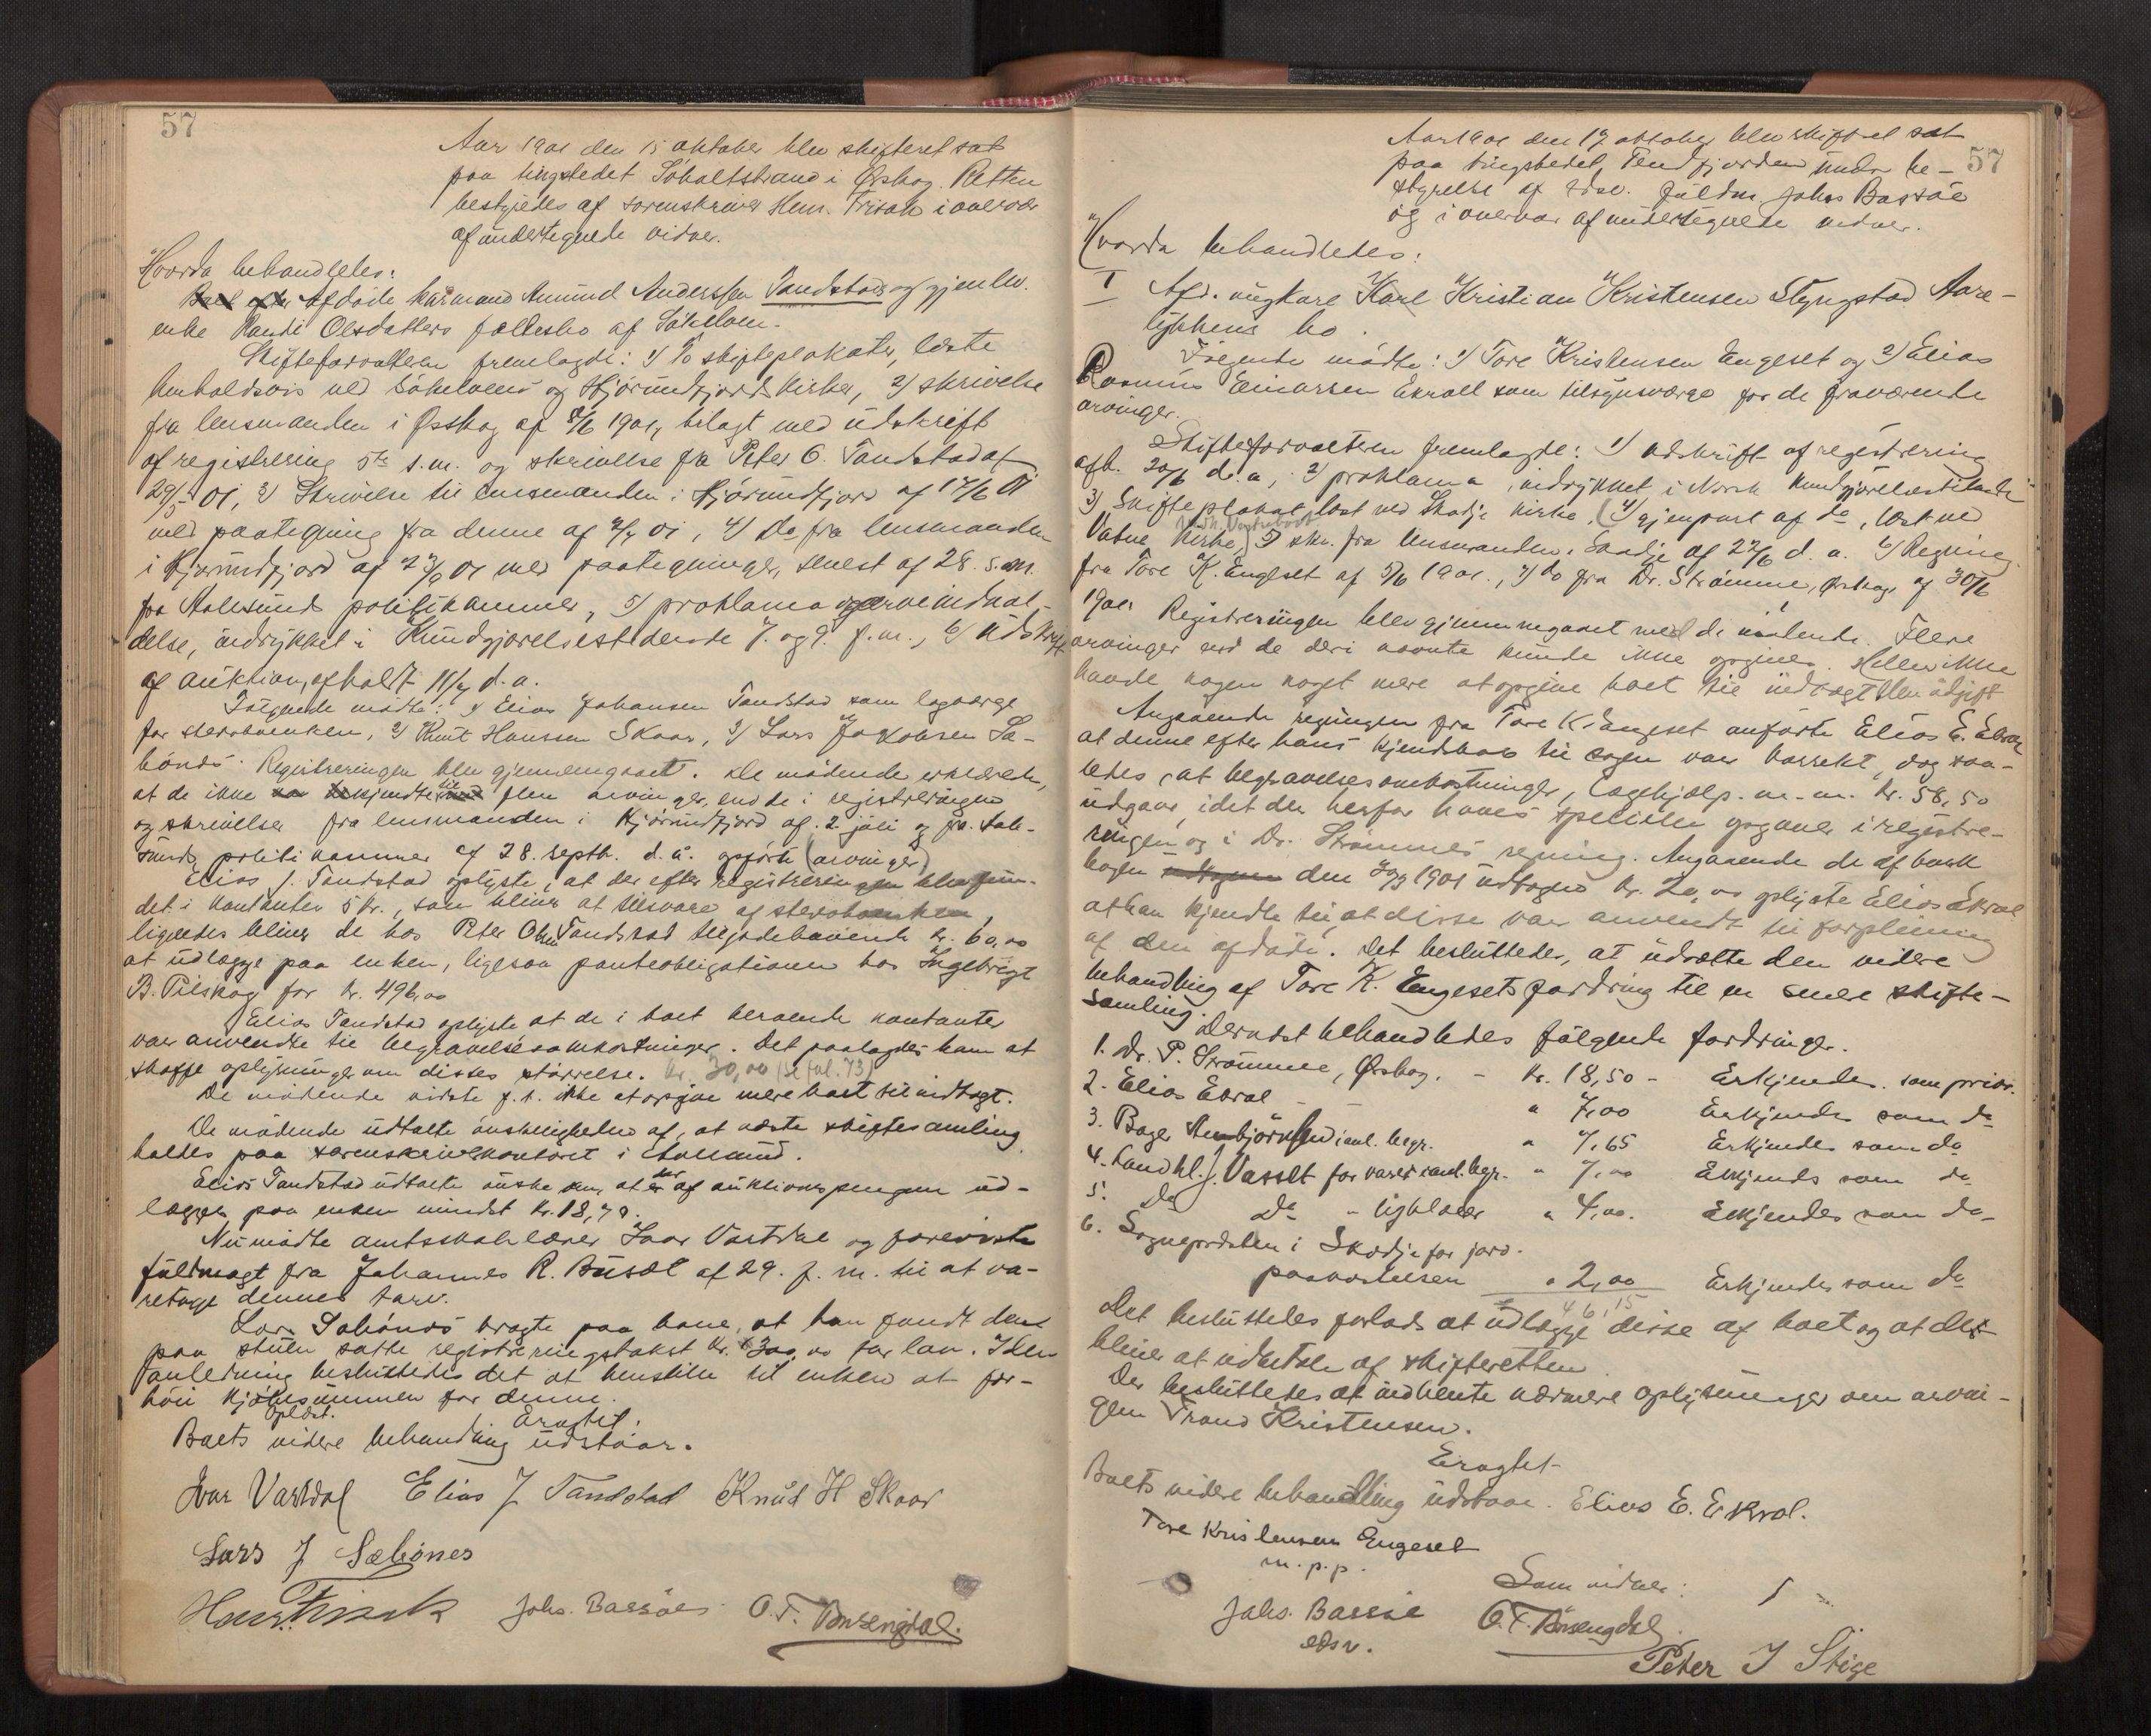 57
Aar 1901 den 15 oktober blev skifteret sat
paa tingstedet Söholtstrand i Ørskog. Retten
bestyredes af sorenskriver Hans Frisak i overvær
af undertegnede vidner.
Hvorda behandledes:
Afdöde kaarmand Amund Anderssen Tandstads og gjenlev.
enke Randi Olsdatters fællesbo af Sökelven.
Skifteforvalteren fremlagde: 1) To skifteplakater, læste
henholdsvis ved Sökelvens og Hjörundfjords kirker, 2) skrivelse
fra lensmanden i Ørskog af 8/6 1901, bilagt med udskrift
af registrering 5te s.m. og skrivelse fra Peter O. Tandstad af
29/5 01, 3) Skrivelse til lensmanden i Hjörundfjord af 17/6 01
med paategning fra denne af 2/7 01, 4) Do fra lensmanden
i Hjörundfjord af 23/9 01 med paategninger, senest af 28. s.m.
fra Aalesunds politikammer, 5) proklama og arveindkal-
delse, indrykket i Kundgjørelsestidende 7. og 9. f.m., 6) Udskrift
af auktion, afholdt 11/7 d.a.
Fölgende mödte: 1) Elias Johansen Tandstad som lagværge
for sterboenken, 2) Knut Hanssen Skaar, 3) Lars Jakobsen Sæ-
bönes. Registreringen blev gjennemgaaet. De mödende erklærede,
at de ikke kjendte til flere arvinger, end de i registreringen
og skrivelser fra lensmanden i Hjörundfjord af 2 juli og fra Aale-
sunds politikammer af 28. septb. d.å. opförte (arvinger)
Elias J. Tandstad oplyste, at der efter registreringen blev fun-
det i kontanter 5 kr., som bliver at tilsvare af sterboenken,
ligeledes bliver de hos Peter Olsen Tandstad tilgodehavende kr. 60,00
at udlægge paa enken, ligesaa panteobligationen hos Ingebrigt
B. Pilskog for kr. 496,00
Elias Tandstad oplyste at de i boet beroende kontanter
var anvendte til begravelsesomkostninger. Det paalagdes ham at
skaffe oplysninger om disses störrelse. kr. 30,00 (se fol. 73)
De mödende vidste f.t. ikke at opgive mere boet til indtægt.
De mödende udtalte önskeligheden af, at næste skiftesamling
holdes paa sorenskriverkontoret i Aalesund.
Elias Tandstad udtalte önske om, at der af auktionspengene ud-
lægges paa enken mindst kr. 18,70.
Nu mödte amtsskolelærer Ivar Vartdal og foreviste
fuldmagt fra Johannes R. Busæt af 29. f.m. til at va-
retage dennes tarv.
Lars Sæbönes bragte paa bane, at han fandt den
paa stuen satte registreringstakst kr. 300,00 for lav. I den
anledning besluttedes det at henstille til enken at for-
höie kjöbesummen for denne.
Oplæst.
Eragtet.
Boets videre behandling udstaar.
Ivar Vartdal Elias J Tandstad Knud H Skaar
Lars J Sæbönes
Hans Frisak Johs. Bassöe O. T. Rösengdal.
57
Aar 1901 den 17 oktober blev skifteret sat
paa tingstedet, Tendfjorden under be-
styrelse af edsv. fuldm. Johs Bassöe
og i overvær af undertegnede vidner.
Hvorda behandledes:
I Afd. ungkare Karl Kristian Kristensen Slyngstad Aare-
lykkens bo.
Fölgende mödte: 1) Tore Kristensen Engeset og 2) Elias
Rasmus Einarsen Ekroll som tilsynsværge for de fraværende
arvinger.
Skifteforvalteren fremlagde: 1) udskrift af registrering
afh. 20/6 d.a., 2) proklama, indrykket i Norsk kundgjörelsestidende
3) Skifteplakat læst ved Skodje kirke, (4) gjenpart af do, læst ved
Vatne kirke,) 5) skr. fra lensmanden i Skodje af 22/6 d.a. 6) Regning
fra Tore K. Engeset af 5/6 1901., 7) do fra Dr. Strömme, Ørskog af 30/6
1901.
Registreringen blev gjennemgaaet med de mödende. Flere
arvinger end de deri nævnte kunde ikke opgives. Heller ikke
havde nogen noget mere at opgive boet til indtægt eller udgift
Angaaende regningen fra Tore K. Engeset anförte Elias E. Ekroll
at denne efter hans kjendskab til sagen var korrekt, dog saa-
ledes, at begravelsesomkostninger, lægehjælp m.m. kr. 58,50
udgaar, idet der herfor haves specielle opgaver i registre-
ringen og i Dr. Strömmes regning. Angaaende de af bank
bogen den 20/3 1901 udtagne kr. 20,00 oplyste Elias Ekrol
at han kjendte til, at disse var anvendt til forpleining
af den afdöde. Det besluttedes, at udsætte den videre
behandling af Tore K. Engesets fordring til en senere skifte-
samling.
Dernæst behandledes fölgende fordringer.
1. Dr. P. Strömme, Ørskog. - kr. 18,50 - Erkjendes som prior.
2. Elias Ekrol - - " 7,00 Erkjendes som do
3. Bager Asbjörnsen i anl. begr. " 7,65 Erkjendes som do
4. Landhl. J. Vasset for varer i anl. begr. " 7,00 Erkjendes som do
5. do do - ligklæder " 4,00. Erkjendes som do
6. Sognepresten i Skodje for jord-
paakastelsen " 2,00 Erkjendes som do
46,15
Det besluttedes forlods at udlægge disse af boet og at det
bliver at udbetale af skifteretten.
Der besluttedes at indhente nærmere oplysninger om arvin-
gen Trond Kristensen.
Eragtet
Boets videre behandling udstaar. Elias E. Ekrol.
Tore Kristensen Engeset
m.p.p.
Som vidner:
Johs. Bassöe O. T. Rösengdal
edsv.
Peter J Stige